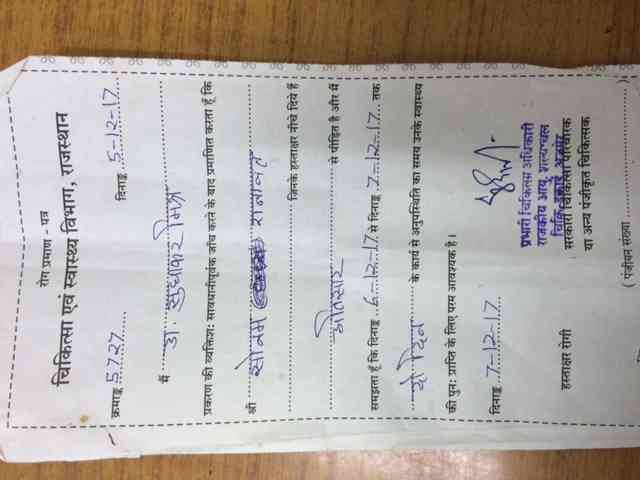 रोग प्रमाण - पत्र
चिकित्सा एवं स्वास्थ्य विभाग, राजस्थान
क्रमाङ्क 5727 दिनाङ्क 5-12-17
मैं डा. सुधाकर मिश्र
प्रकरण की व्यक्तिश: सावधानीपूर्वक जाँच करने के बाद प्रमाणित करता हूँ कि
श्री सोनम रानावत
जिनके हस्ताक्षर नीचे दिये हैं
अतिसार से पीड़ित है और मैं
समझता हूँ कि दिनाङ्क 6-12-17 से दिनाङ्क 7-12-17 तक
दो दिन के कार्य से अनुपस्थिति का समय उनके स्वास्थ्य
की पुन: प्राप्ति के लिए परम आवश्यक है।
दिनाङ्क 7-12-17
प्रभारी चिकित्सा अधिकारी
राजकीय आयु.
हस्ताक्षर रोगी सरकारी चिकित्सा परिचारक
या अन्य पंजीकृत चिकित्सक
( पंजीयन संख्या